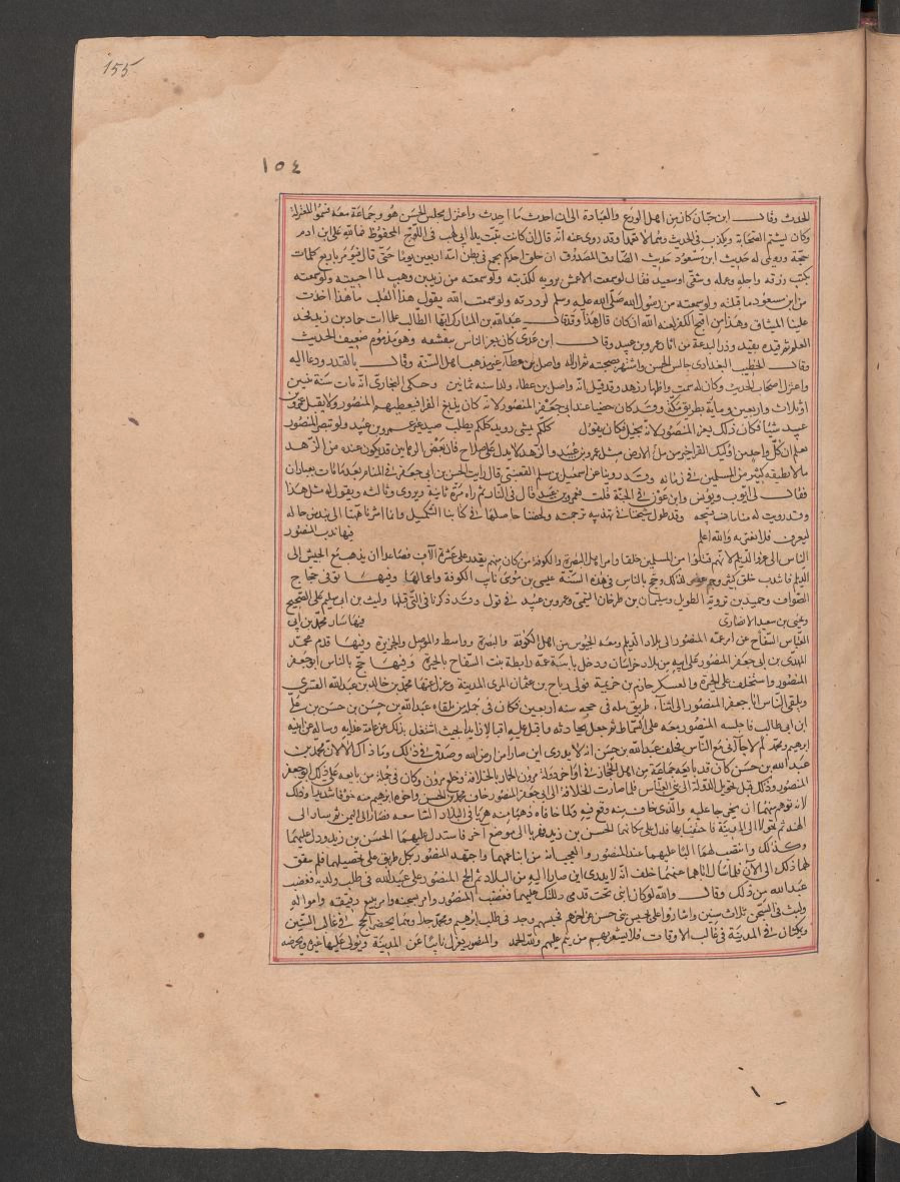 155
١٥٤
الحديث وقال ابن حبان كان من اهل الورع والعبادة الى ان احدث ما احدث واعتزل مجلس الحسن هو وجماعة معه فسموا المعتزلة
وكان يشتم الصحابة ويكذب في الحديث وهما لا تعمدا وقد روى عنه انه قال ان كانت تبت يدا ابي لهب في اللوح المحفوظ فما لله على ابن ادم
حجة وروى له حديث ابن مسعود حدثنا الصادق المصدوق ان خلق احدكم يجمع في بطن امه اربعين يوما حتى قال فيؤمر باربع كلمات
بكتب رزقه واجله وعمله وشقي او سعيد فقال لو سمعت الاعمش يرويه لكذبته ولو سمعته من زيد بن وهب لما احببته ولو سمعته
من ابن مسعود ما قبلته ولو سمعته من رسول الله صلى الله عليه وسلم لرددته ولو سمعت الله يقول هذا لقلت ما على هذا اخذت
علينا الميثاق وهذا من اقبح الكفر لعنه الله ان كان قال هذا وقد قال عبد الله بن المبارك ايها الطالب علما ات حماد بن زيد فخذ
العلم ثم قيده بقيد وذر البدعة من اثار عمرو بن عبيد وقال ابن عدي كان يغر الناس بتقشفه وهو مذموم ضعيف الحديث
وقال الخطيب البغدادي جالس الحسن واشتهر بصحبته ثم ازاله واصل بن عطاء عن مذهب اهل السنة وقال بالقدر ودعا اليه
واعتزل اصحاب الحديث وكان له سمت واظهار زهد وقد قيل انه واصل بن عطاء ولدا سنة ثمانين وحكى البخاري انه مات سنة ثنتين
او ثلاث واربعين ومائة بطريق مكة وقد كان حظيا عند ابي جعفر المنصور لانه كان يفد مع القراء فيعطيهم المنصور ولا يقبل عمرو بن
عبيد شيئا فكان ذلك يعجب المنصور لانه بخيل فكان يقول كلكم يمشي رويد كلكم يطلب صيد غير عمرو بن عبيد ولو تبصر المنصور
لعلم ان كل واحد من اوليك القراء خير من ملء الارض مثل عمرو بن عبيد والزهد لا يدل على صلاح فان بعض الرهابين قد يكون عنده من الزهد
ما لا يطيقه كثير من المسلمين في زمانه وقد روينا عن اسمعيل بن مسلم القعنبي قال رايت الحسن بن ابي جعفر في المنام بعد ما مات بعبادان
فقال لي ايوب ويونس وابن عون في الجنة قلت فعمرو بن عبيد قال في النار ثم راه مرة ثانية ويروى وثالثة ويقول له مثل هذا
وقد رويت له منامات قبيحة وقد طول شيخنا في تهذيبه ترجمته ولخصنا حاصلها في كتابنا التكميل وانما اشرنا ههنا الى نبذ من حاله
ليعرف فلا يغتر به والله اعلم فيها ندب المنصور
الناس الى غزو الديلم لانهم قتلوا من المسلمين خلقا وامر اهل البصرة والكوفة من كان منهم يقدر على عشرة الاف فصاعدا ان يذهب مع الجيش الى
الديلم فانتدب خلق كثير وجم غفير لذلك وحج بالناس في هذه السنة عيسى بن موسى نايب الكوفة واعمالها وفيها توفي حجاج
الصواف وحميد بن ترويه الطويل وسليمان بن طرخان التيمي وعمرو بن عبيد في قول وقد ذكرنا في التي قبلها وليث بن ابي سليم على الصحيح
ويحيى بن سعيد الانصاري فيها سار محمد بن ابي
العباس السفاح عن امر عمه المنصور الى بلاد الديلم ومعه الجيوش من اهل الكوفة والبصرة وواسط والموصل والجزيرة وفيها قدم محمد
المهدي بن ابي جعفر المنصور على ابيه من بلاد خراسان ودخل بابنة عمه رايطة بنت السفاح بالحيرة وفيها حج بالناس ابو جعفر
المنصور واستخلف على الحيرة والعسكر خازم بن خزيمة وولى رياح بن عثمان المري المدينة وعزل عنها محمد بن خالد بن عبد الله القسري
وتلقى الناس ابا جعفر المنصور الى اثناء طريق مكة في حجه سنة اربعين فكان في جملة من تلقاه عبد الله بن حسن بن حسن بن علي
ابن ابي طالب فاجلسه المنصور معه على السماط ثم جعل يحادثه واقبل عليه اقبالا زايدا بحيث اشتغل بذلك عن عامة غدايه وساله عن ابنيه
ابرهيم ومحمد لم لا جاآني مع الناس فحلف عبد الله بن حسن انه لا يدري اين صارا من ارض الله وصدق في ذلك وما ذاك الا لان محمد بن
عبد الله بن حسن كان قد بايعه جماعة من اهل الحجاز في اواخر دولة مروان الحمار بالخلافة وخلع مروان وكان في جملة من بايعه على ذلك ابو جعفر
المنصور وذلك قبل تحويل الدولة الى بني العباس فلما صارت الخلافة الى ابي جعفر المنصور خاف محمد بن عبد الله بن الحسن واخوه ابرهيم منه خوفا شديدا وذلك
لانه توهم منهما ان يخرجا عليه والذي خاف منه وقع فيه ولما خافاه ذهبا منه هربا في البلاد الشاسعة فصارا الى اليمن ثم سارا الى
الهند ثم تحولا الى المدينة فاختفيا بها فدل على مكانهما الحسن بن زيد فهربا الى موضع آخر فاستدل عليهما الحسن بن زيد ودل عليهما
وكذلك وانتصب لهما البا عليهما عند المنصور والعجب انه من اتباعهما واجتهد المنصور بكل طريق على تحصيلهما فلم يتفق
لهما ذلك الى الآن فلما سال اباهما عنهما حلف انه لا يدري اين صارا اليه من البلاد ثم الح المنصور على عبد الله في طلب ولديه فغضب
عبد الله من ذلك وقال والله لو كانا تحت قدمي ما دللتك عليهما فغضب المنصور وامر بسجنه وامر ببيع رقيقه وامواله
ولبث في السجن ثلاث سنين واشاروا على المنصور بحبس بني حسن عن اخرهم فحبسهم وجد في طلب ابرهيم ومحمد جدا وهما يحضران الحج في غالب السنين
ويكمنان في المدينة في غالب الاوقات فلا يشعر بهم من ينم عليهم ولله الحمد والمنصور يعزل نايبا عن المدينة ويولي عليها غيره ويحرضه